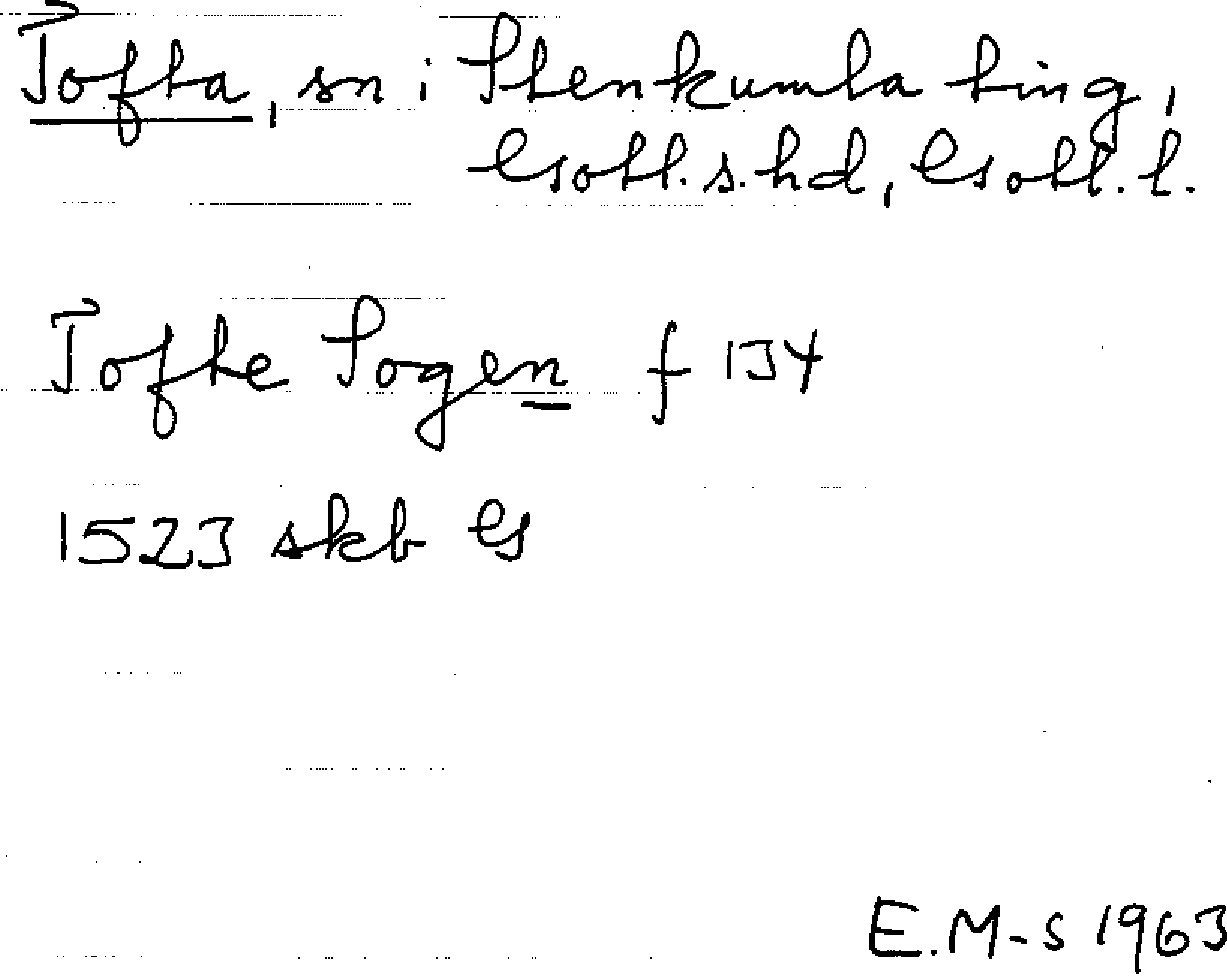 Tofta, sn i Stenkumla ting,
Gotl.s.hd, Gotl. l.
Tofte Sogen f 134
1523 skb G
E.M-S 1963